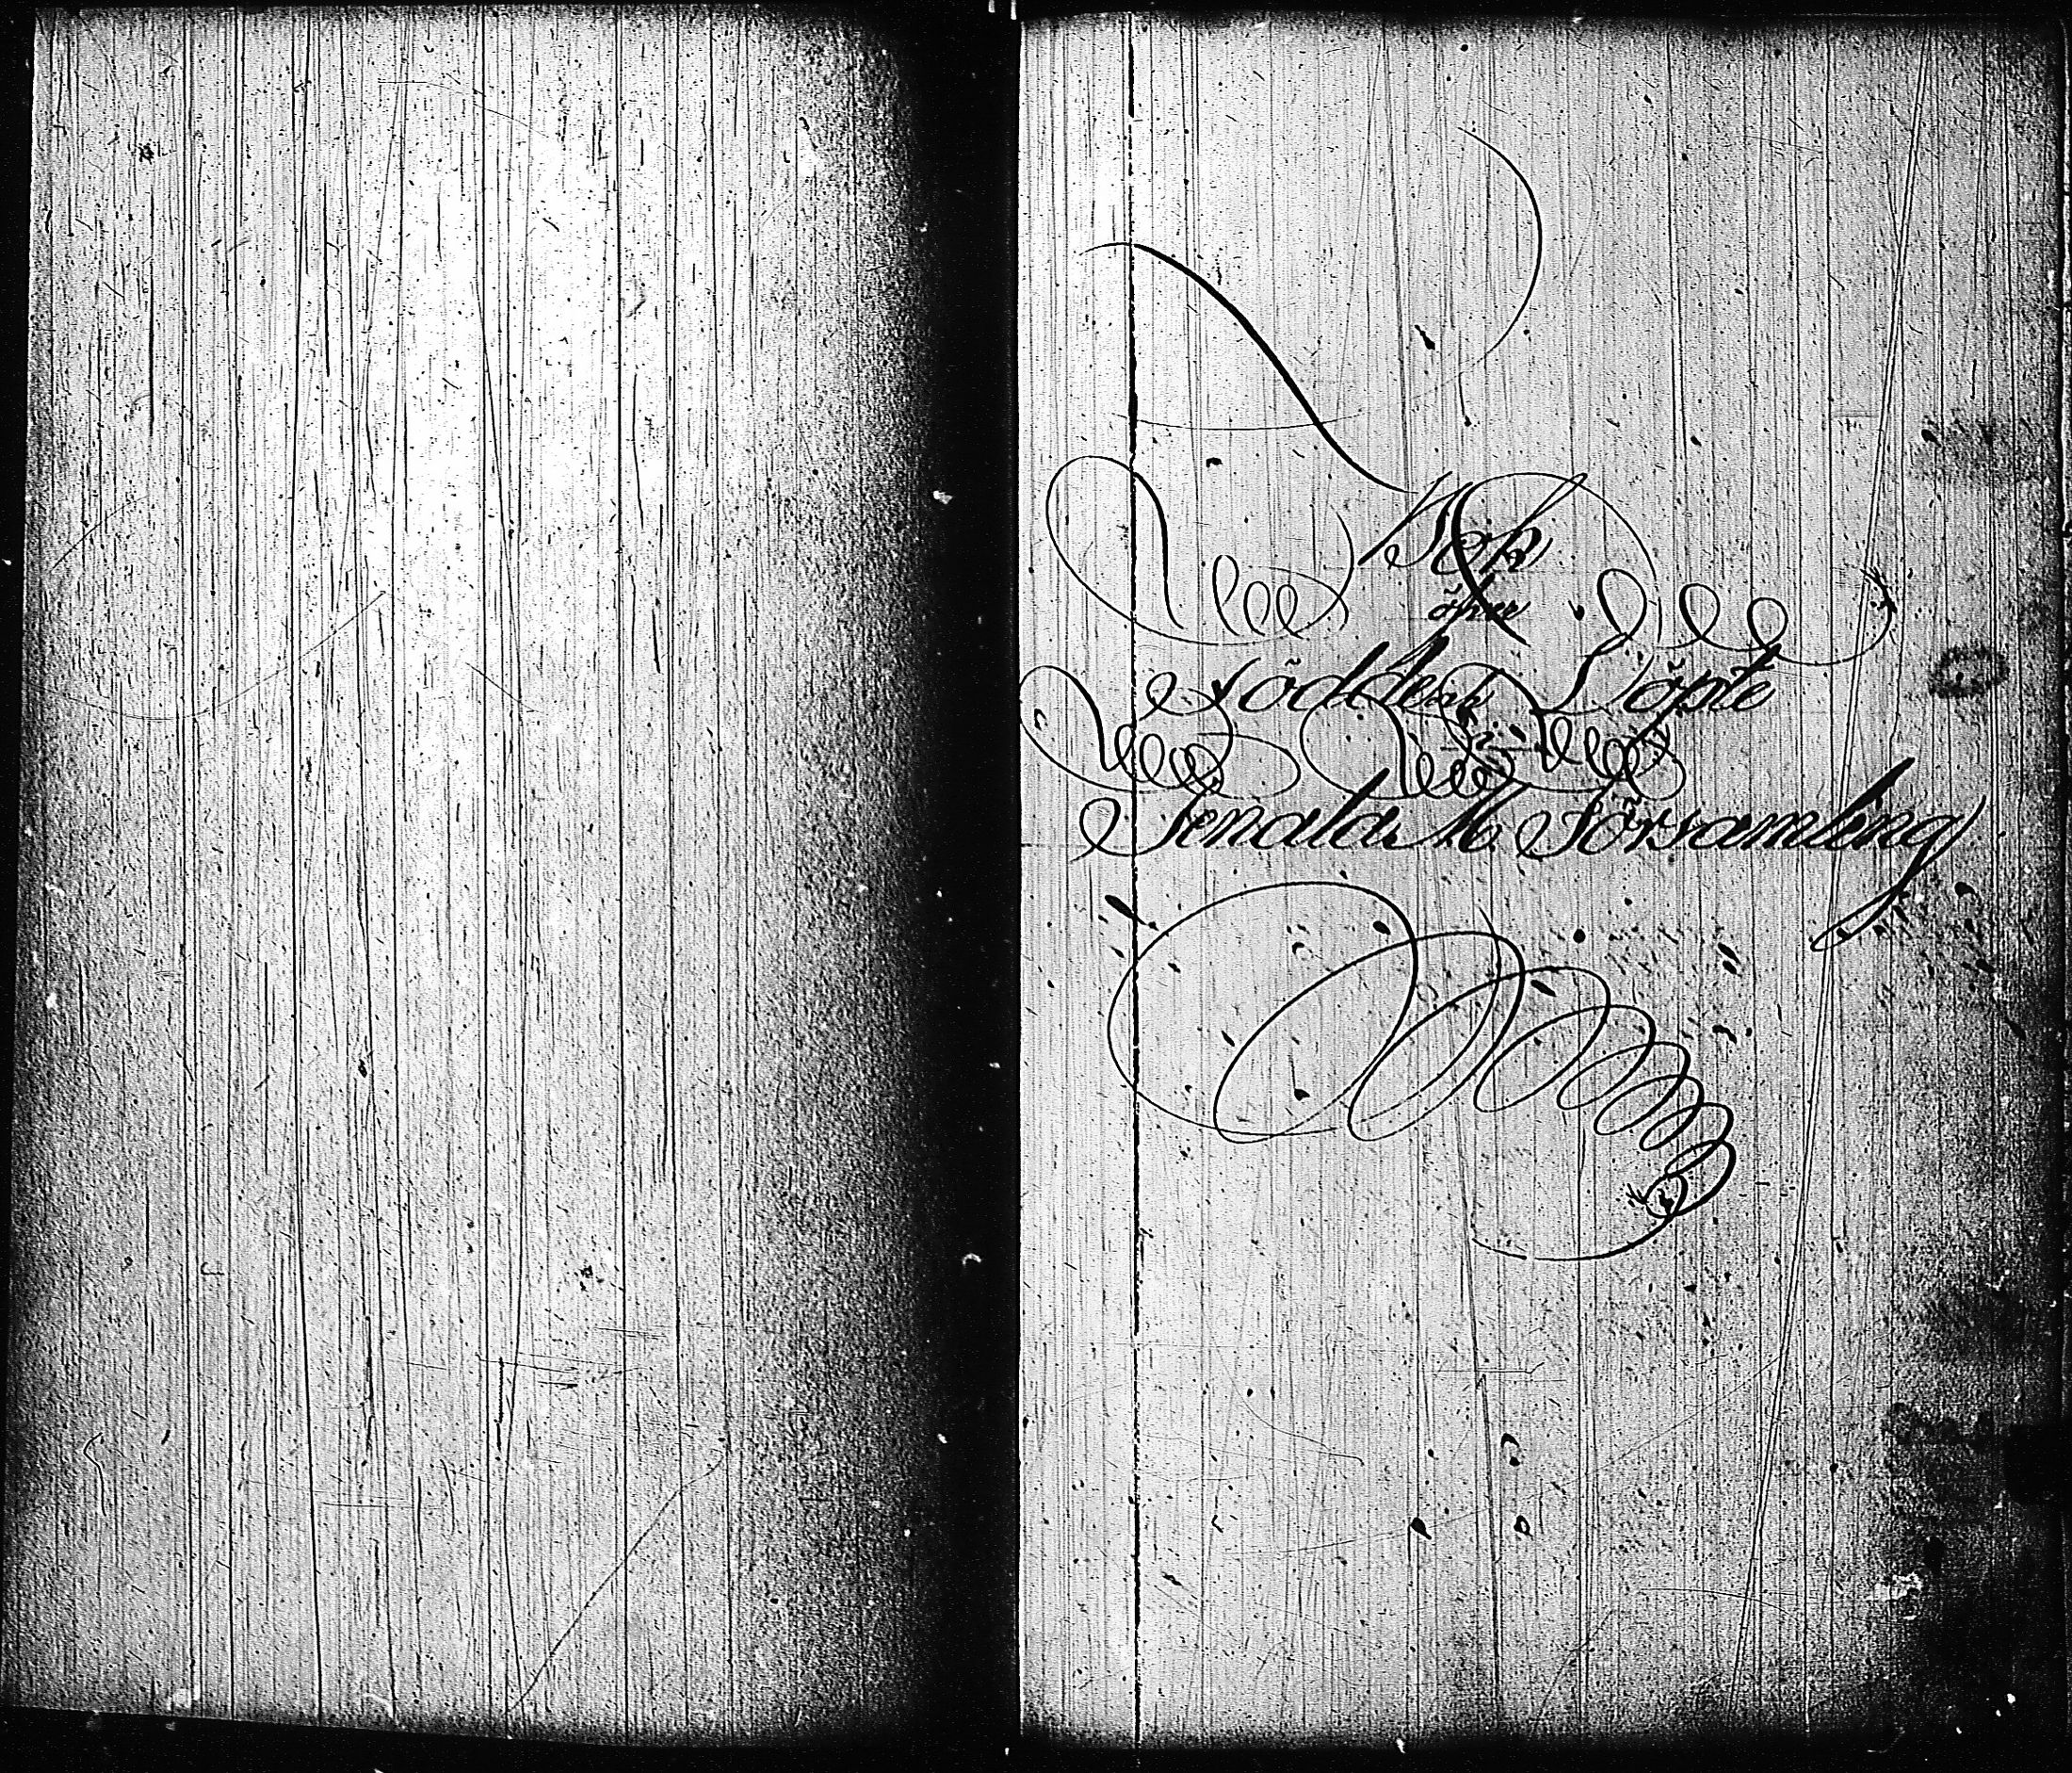 Bok
öfver
Födde och Döpte
i
Tenala M. Församling